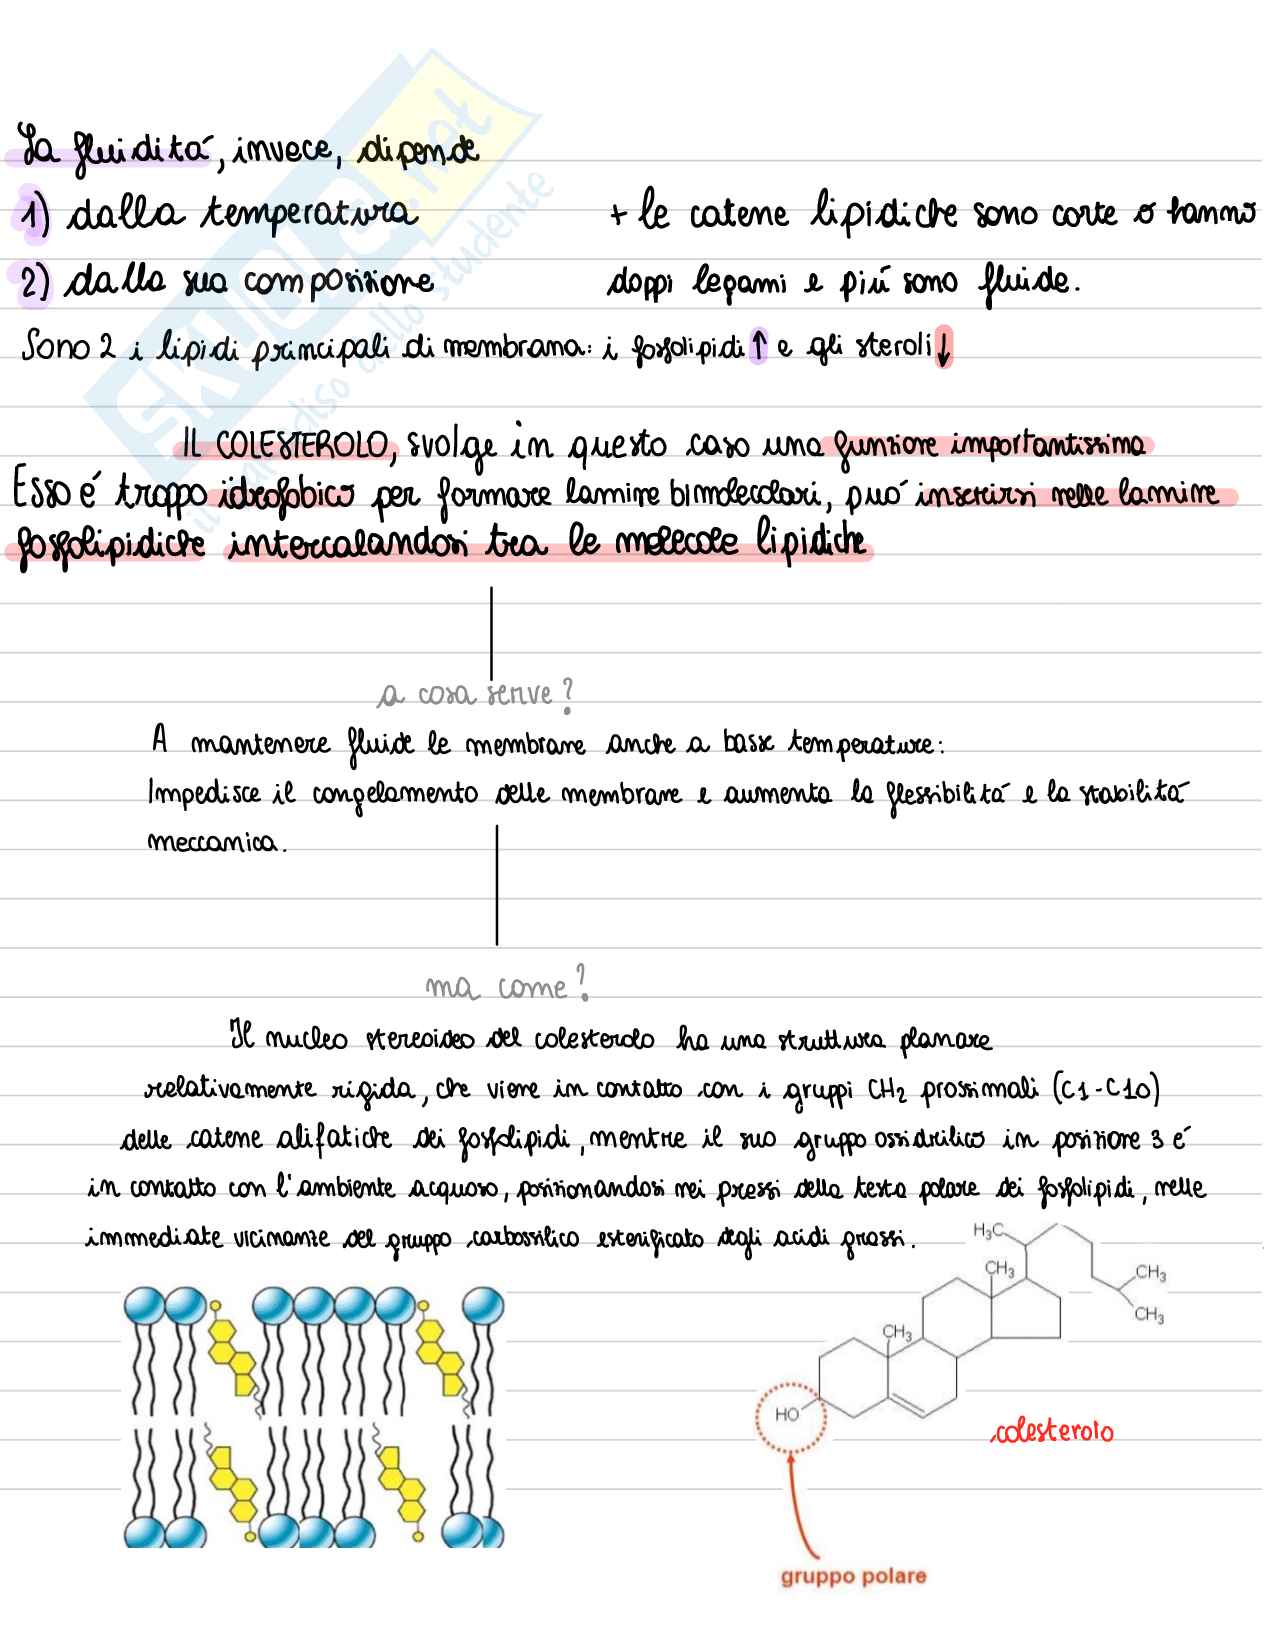 La fluidità, invece, dipende
1) dalla temperatura
2) dalla sua composizione
+ le catene lipidiche sono corte o hanno
doppi legami e più sono fluide.
Sono 2 i lipidi principali di membrana: i fosfolipidi ↑ e gli steroli ↓
IL COLESTEROLO, svolge in questo caso una funzione importantissima
Esso é troppo idrofobico per formare lamine bimolecolari, può inserirsi nelle lamine
fosfolipidiche intercalandosi tra le molecole lipidiche
a cosa serve?
A mantenere fluide le membrane anche a basse temperature:
Impedisce il congelamento delle membrane e aumenta la flessibilità e la stabilità
meccanica.
ma come?
Il nucleo stereoideo del colesterolo ha una struttura planare
relativamente rigida, che viene in contatto con i gruppi CH₂ prossimali (C1-C10)
delle catene alifatiche dei fosfolipidi, mentre il suo gruppo ossidrilico in posizione 3 é
in contatto con l'ambiente acquoso, posizionandosi nei pressi della testa polare dei fosfolipidi, nelle
immediate vicinanze del gruppo carbossilico esterificato degli acidi grassi.
H₃C
CH₃
CH₃
CH₃
CH₃
HO
colesterolo
gruppo polare
SKUOLA.net
il paradiso dello studente